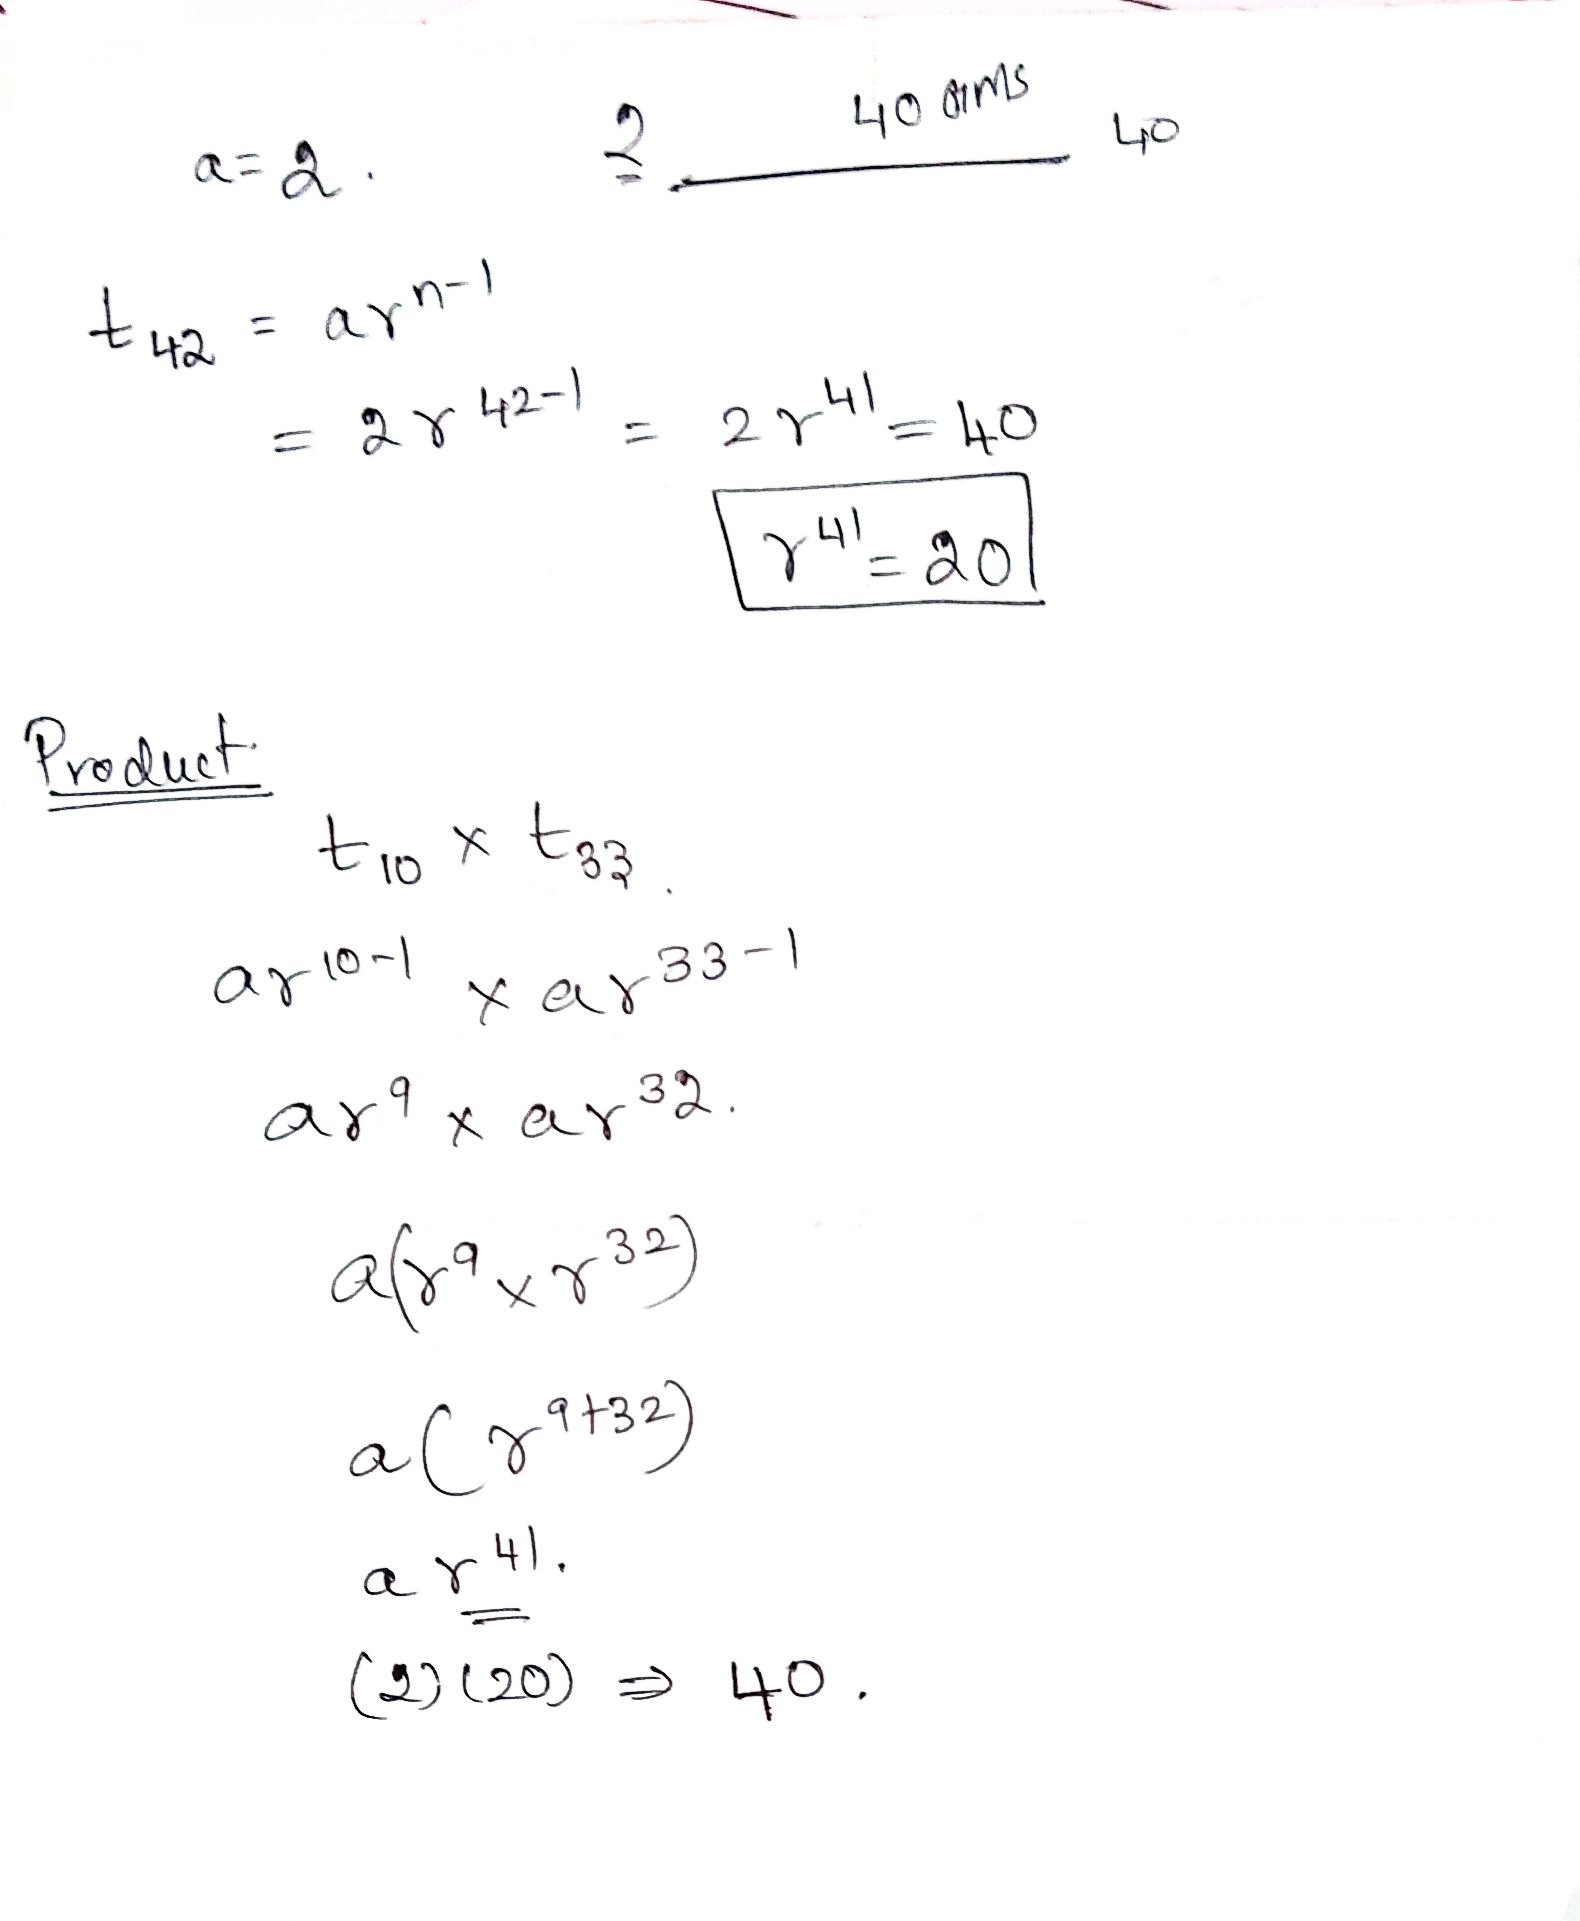 a = 2 . 2 40 40
t₄₂ = arⁿ⁻¹
= 2r⁴²⁻¹ = 2r⁴¹ = 40
r⁴¹ = 20
Product
t₁₀ × t₃₃.
ar¹⁰⁻¹ × ar³³⁻¹
ar⁹ × ar³².
a(r⁹ × r³²)
a(r⁹⁺³²)
ar⁴¹.
(2)(20) ⇒ 40.